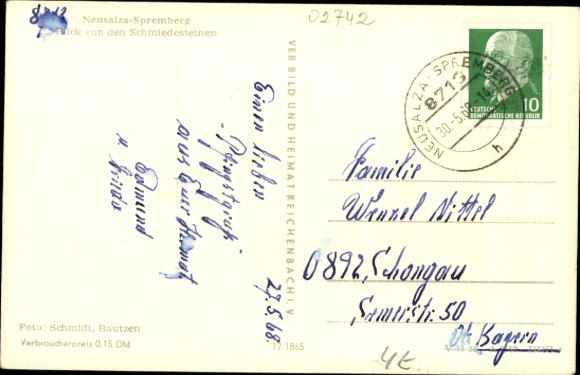 8713
02742
Neusalza-Spremberg
Blick von den Schmiedesteinen
Einen lieben
"Pfingstgruß"
aus Euer Heimat
Edmund
u. Frieda
27.5.68.
Foto: Schmidt, Bautzen
Verbraucherpreis 0.15 DM
VEB BILD UND HEIMAT REICHENBACH I. V.
12/1865
NEUSALZA-SPREMBERG
8713
30.-5.68-14
h
DEUTSCHE
DEMOKRATISCHE REPUBLIK
10
Familie
Wenzel Nittel
0892, Schongau
50
Bayern
DDR
4E